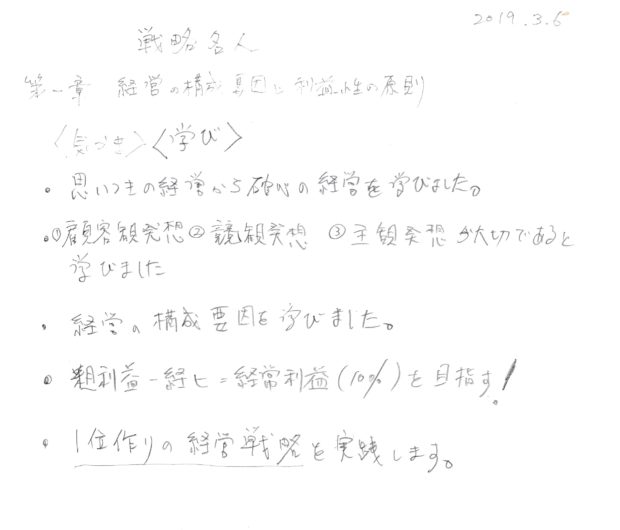 2019.3.6
戦略名人
第一章 経営の構成要因と利益性の原則
〈気づき〉〈学び〉
・思いつきの経営から確心の経営を学びました。
・①顧客観発想②競観発想 ③主観発想が大切であると
学びました
・経営の構成要因を学びました。
・粗利益－経ヒ＝経常利益(10%)を目指す!
・1位作りの経営戦略を実践します。